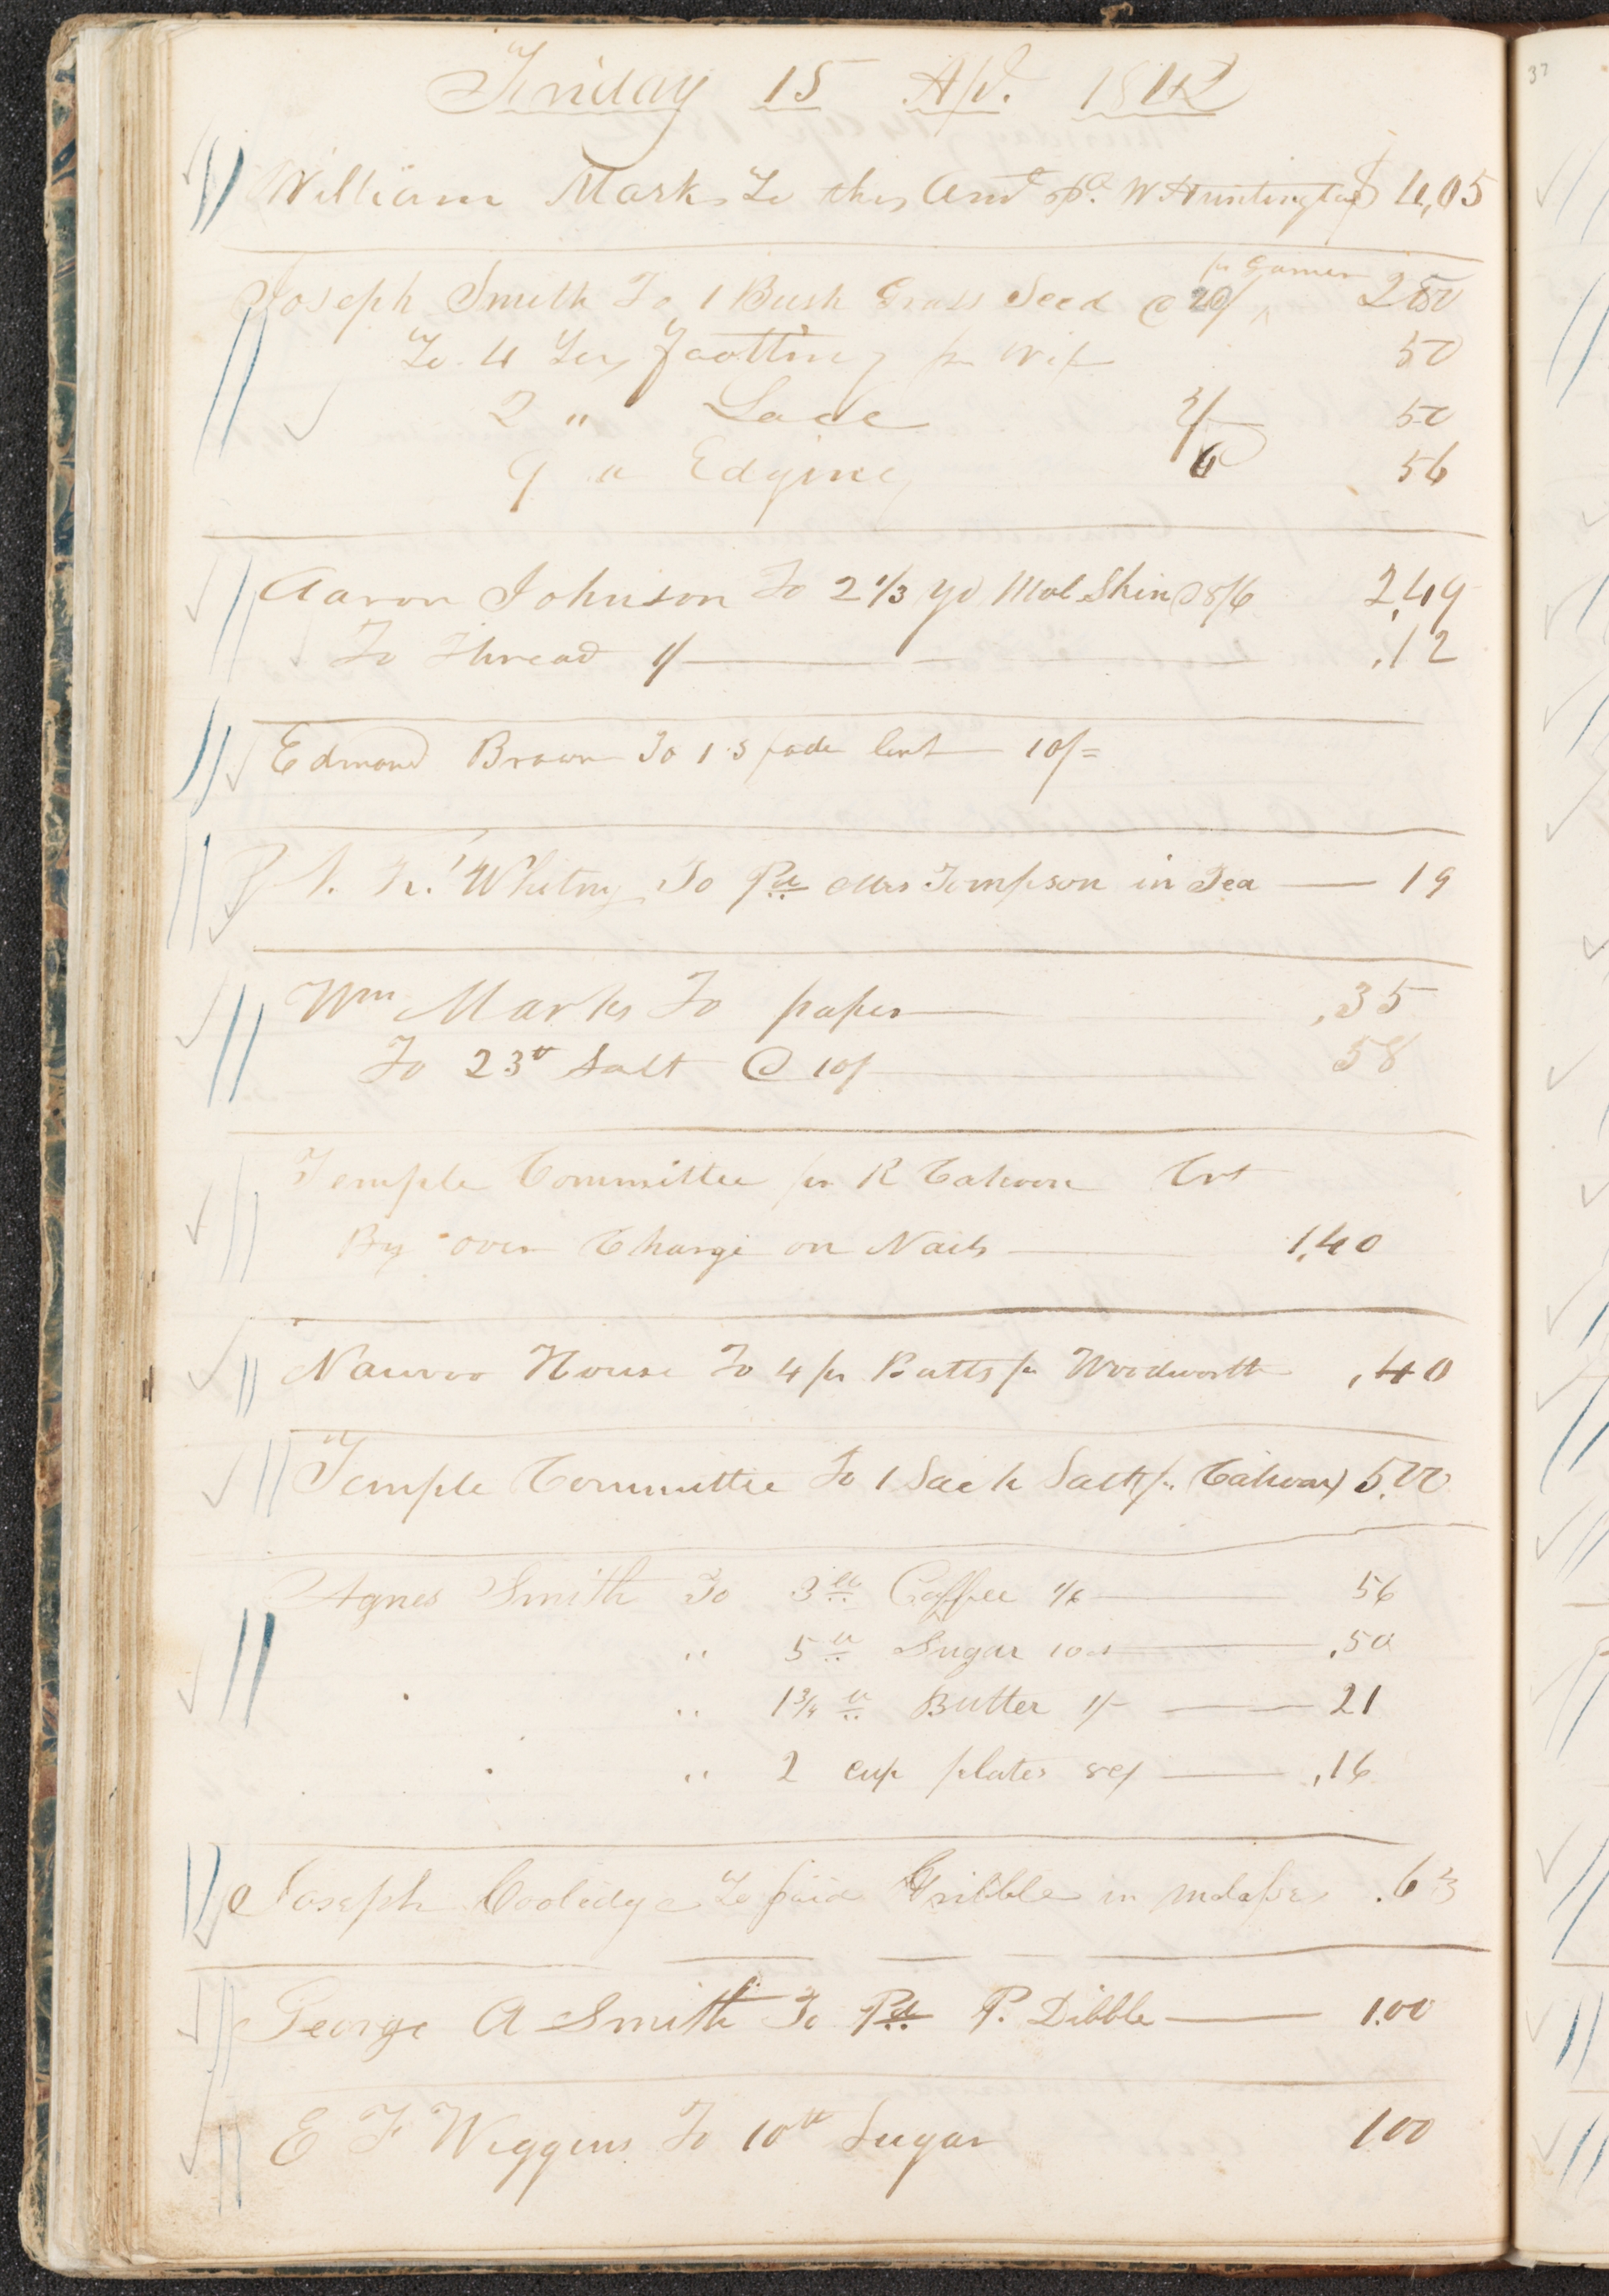 Friday 15 Apl. 1842
William Marks To this Amt pd. W. Huntington $ 4,05
pr Garner
Joseph Smith To 1 Bush Grass Seed @ 20/ 2 50
To 4 yds Footting pr Wife 50
2 " Lace 2/ 50
9 " Edging 6 56
Aaron Johnson To 2 1/3 yd Mol Skin @ 8/6 2,49
To Thread 1/ ,12
Edmond Brown To 1 Spade lent 10/=
N. K. Whitny To Pd Mrs Tompson in Tea 19
Wm Marks To paper ,35
To 23 lb Salt @ 10/ 58
Temple Committee pr R Cahoon Crt
By over Charge on Nails 1,40
Nauvoo House To 4 pr Butts pr Woodworth ,40
Temple Committee To 1 Sack Salt pr. Cahoon 5.00
Agnes Smith To 3 lb Coffee 1/6 56
" 5 lb Sugar 10 ,50
" 1 3/4 lb Butter 1/- 21
" 2 cup plates 8c/ ,16
Joseph Coolidge To paid Gribble in molasses .63
George A Smith To Pd P. Dibble 1.00
E F Wiggins To 10 lb Sugar 1.00
37